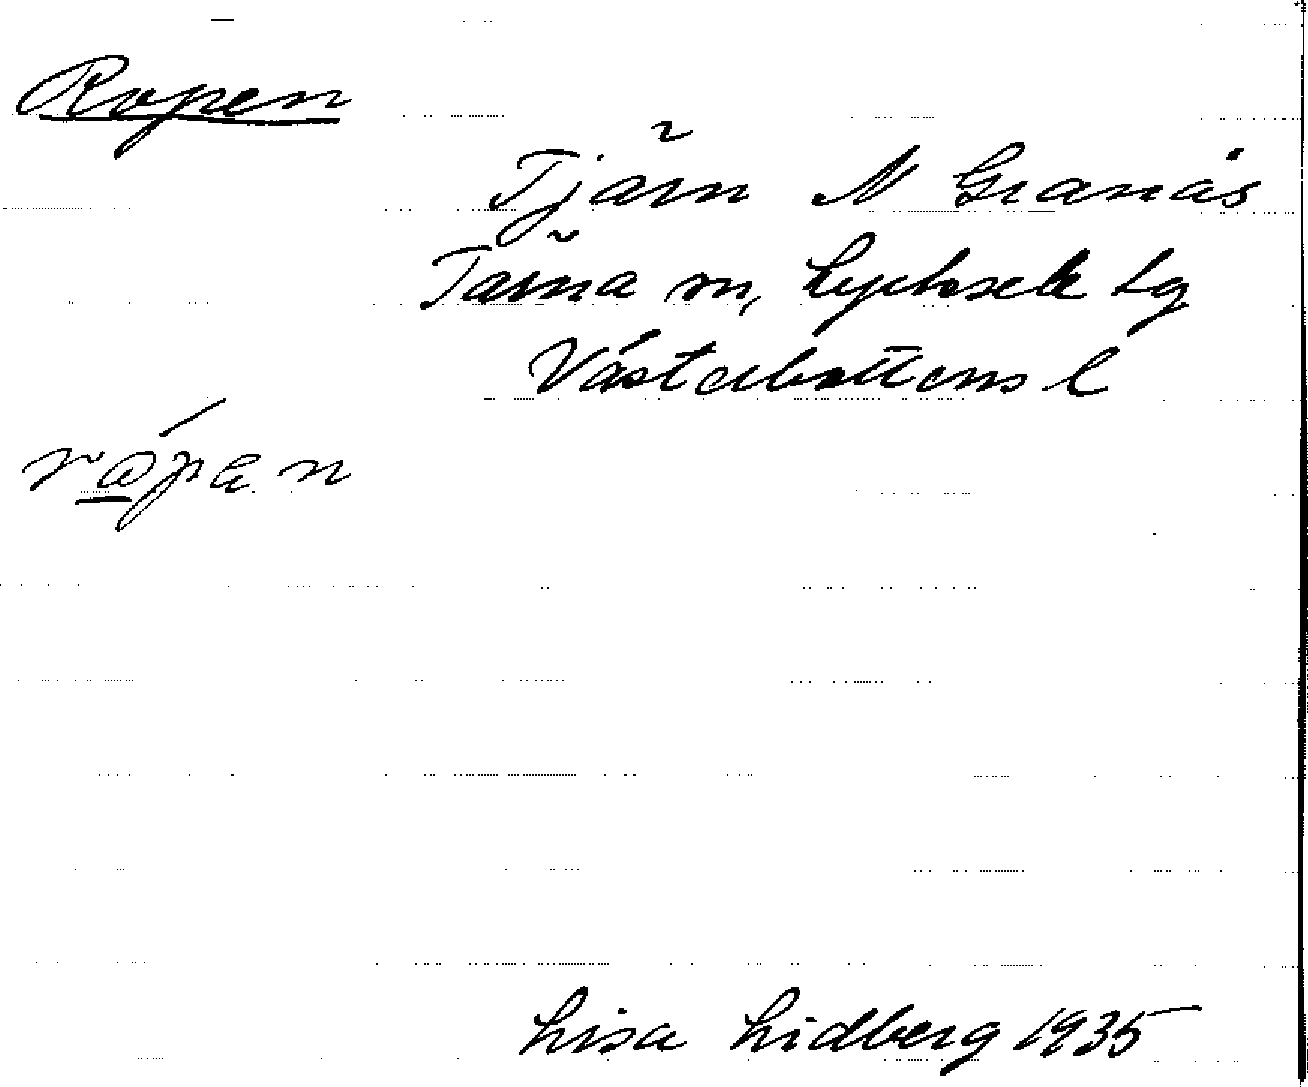 Ropen
Tjärn N Granås
Tärna sn, Lycksele lg
Västerbottens l
rǻpan
Lisa Lidberg 1935